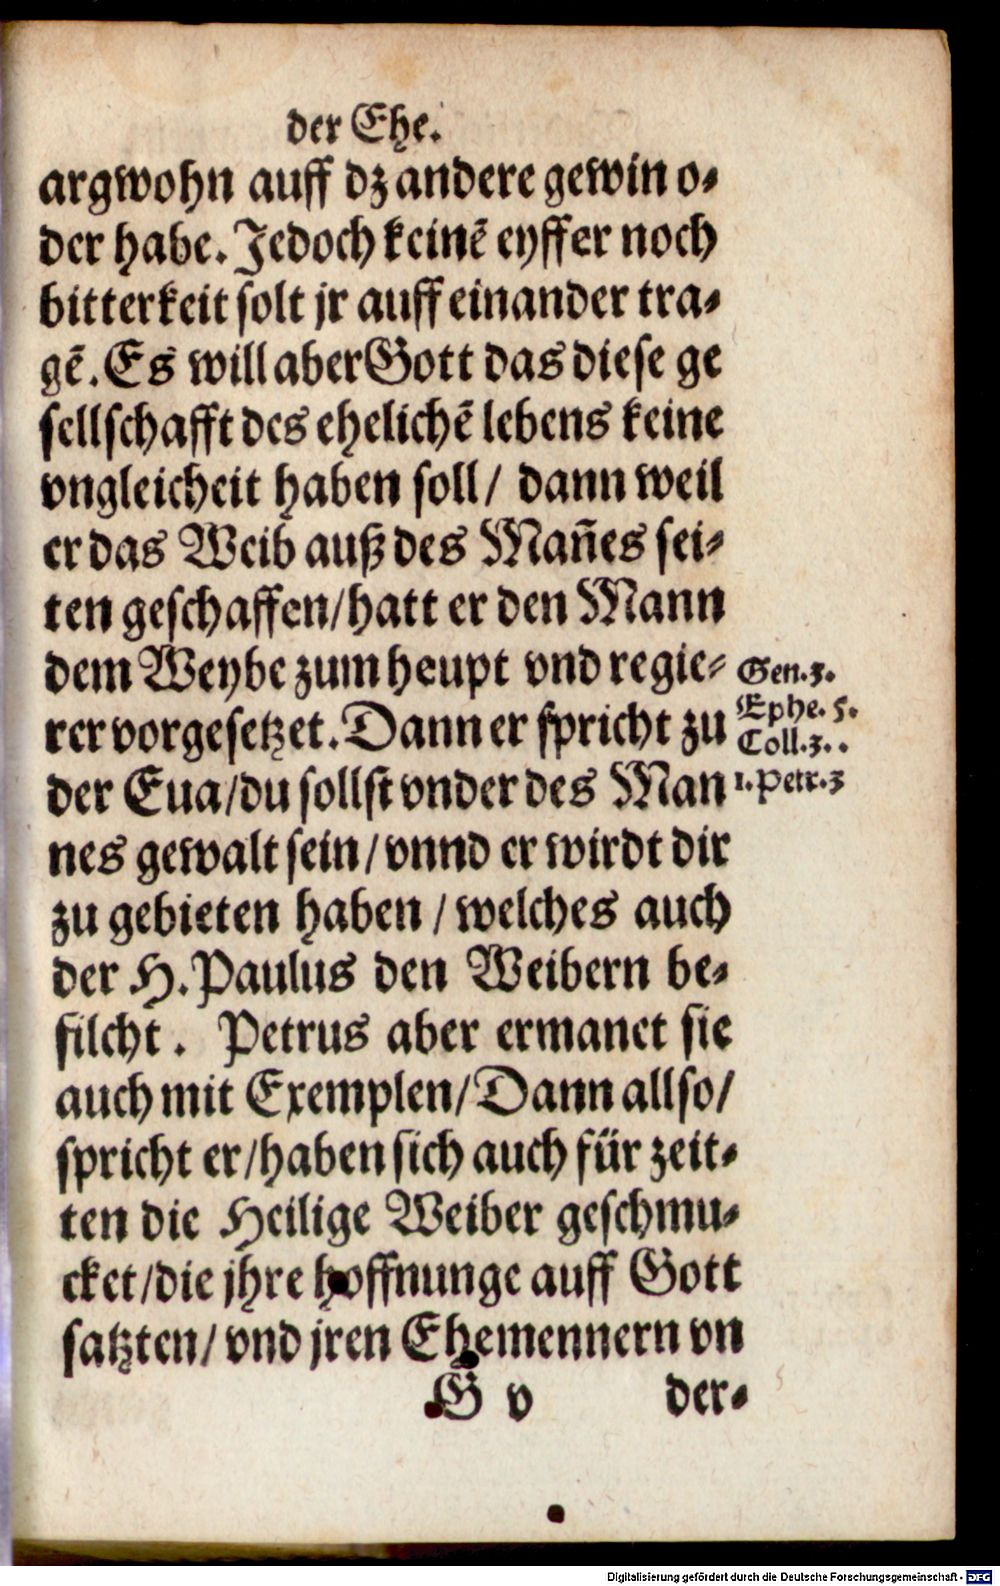 der Ehe.
argwohn auff dz andere gewin o-
der habe. Jedoch keinē eyffer noch
bitterkeit solt jr auff einander tra-
gē. Es will aber Gott das diese ge
sellschafft des ehelichē lebens keine
vngleicheit haben soll/ dann weil
er das Weib auß des Mañes sei-
ten geschaffen/hatt er den Mann
dem Weybe zum heupt vnd regie-
rer vorgesetzet. Dann er spricht zu
der Eua/du sollst vnder des Man
nes gewalt sein/vnnd er wirdt dir
zu gebieten haben/welches auch
der H. Paulus den Weibern be-
filcht. Petrus aber ermanet sie
auch mit Exemplen/Dann allso/
spricht er/haben sich auch für zeit-
ten die Heilige Weiber geschmu-
cket/die jhre hoffnunge auff Gott
satzten/vnd jren Ehemennern vn
G v der-
Gen.3.
Ephe.5.
Coll.3..
1.Petr.3
Digitalisierung gefördert durch die Deutsche Forschungsgemeinschaft - DFG